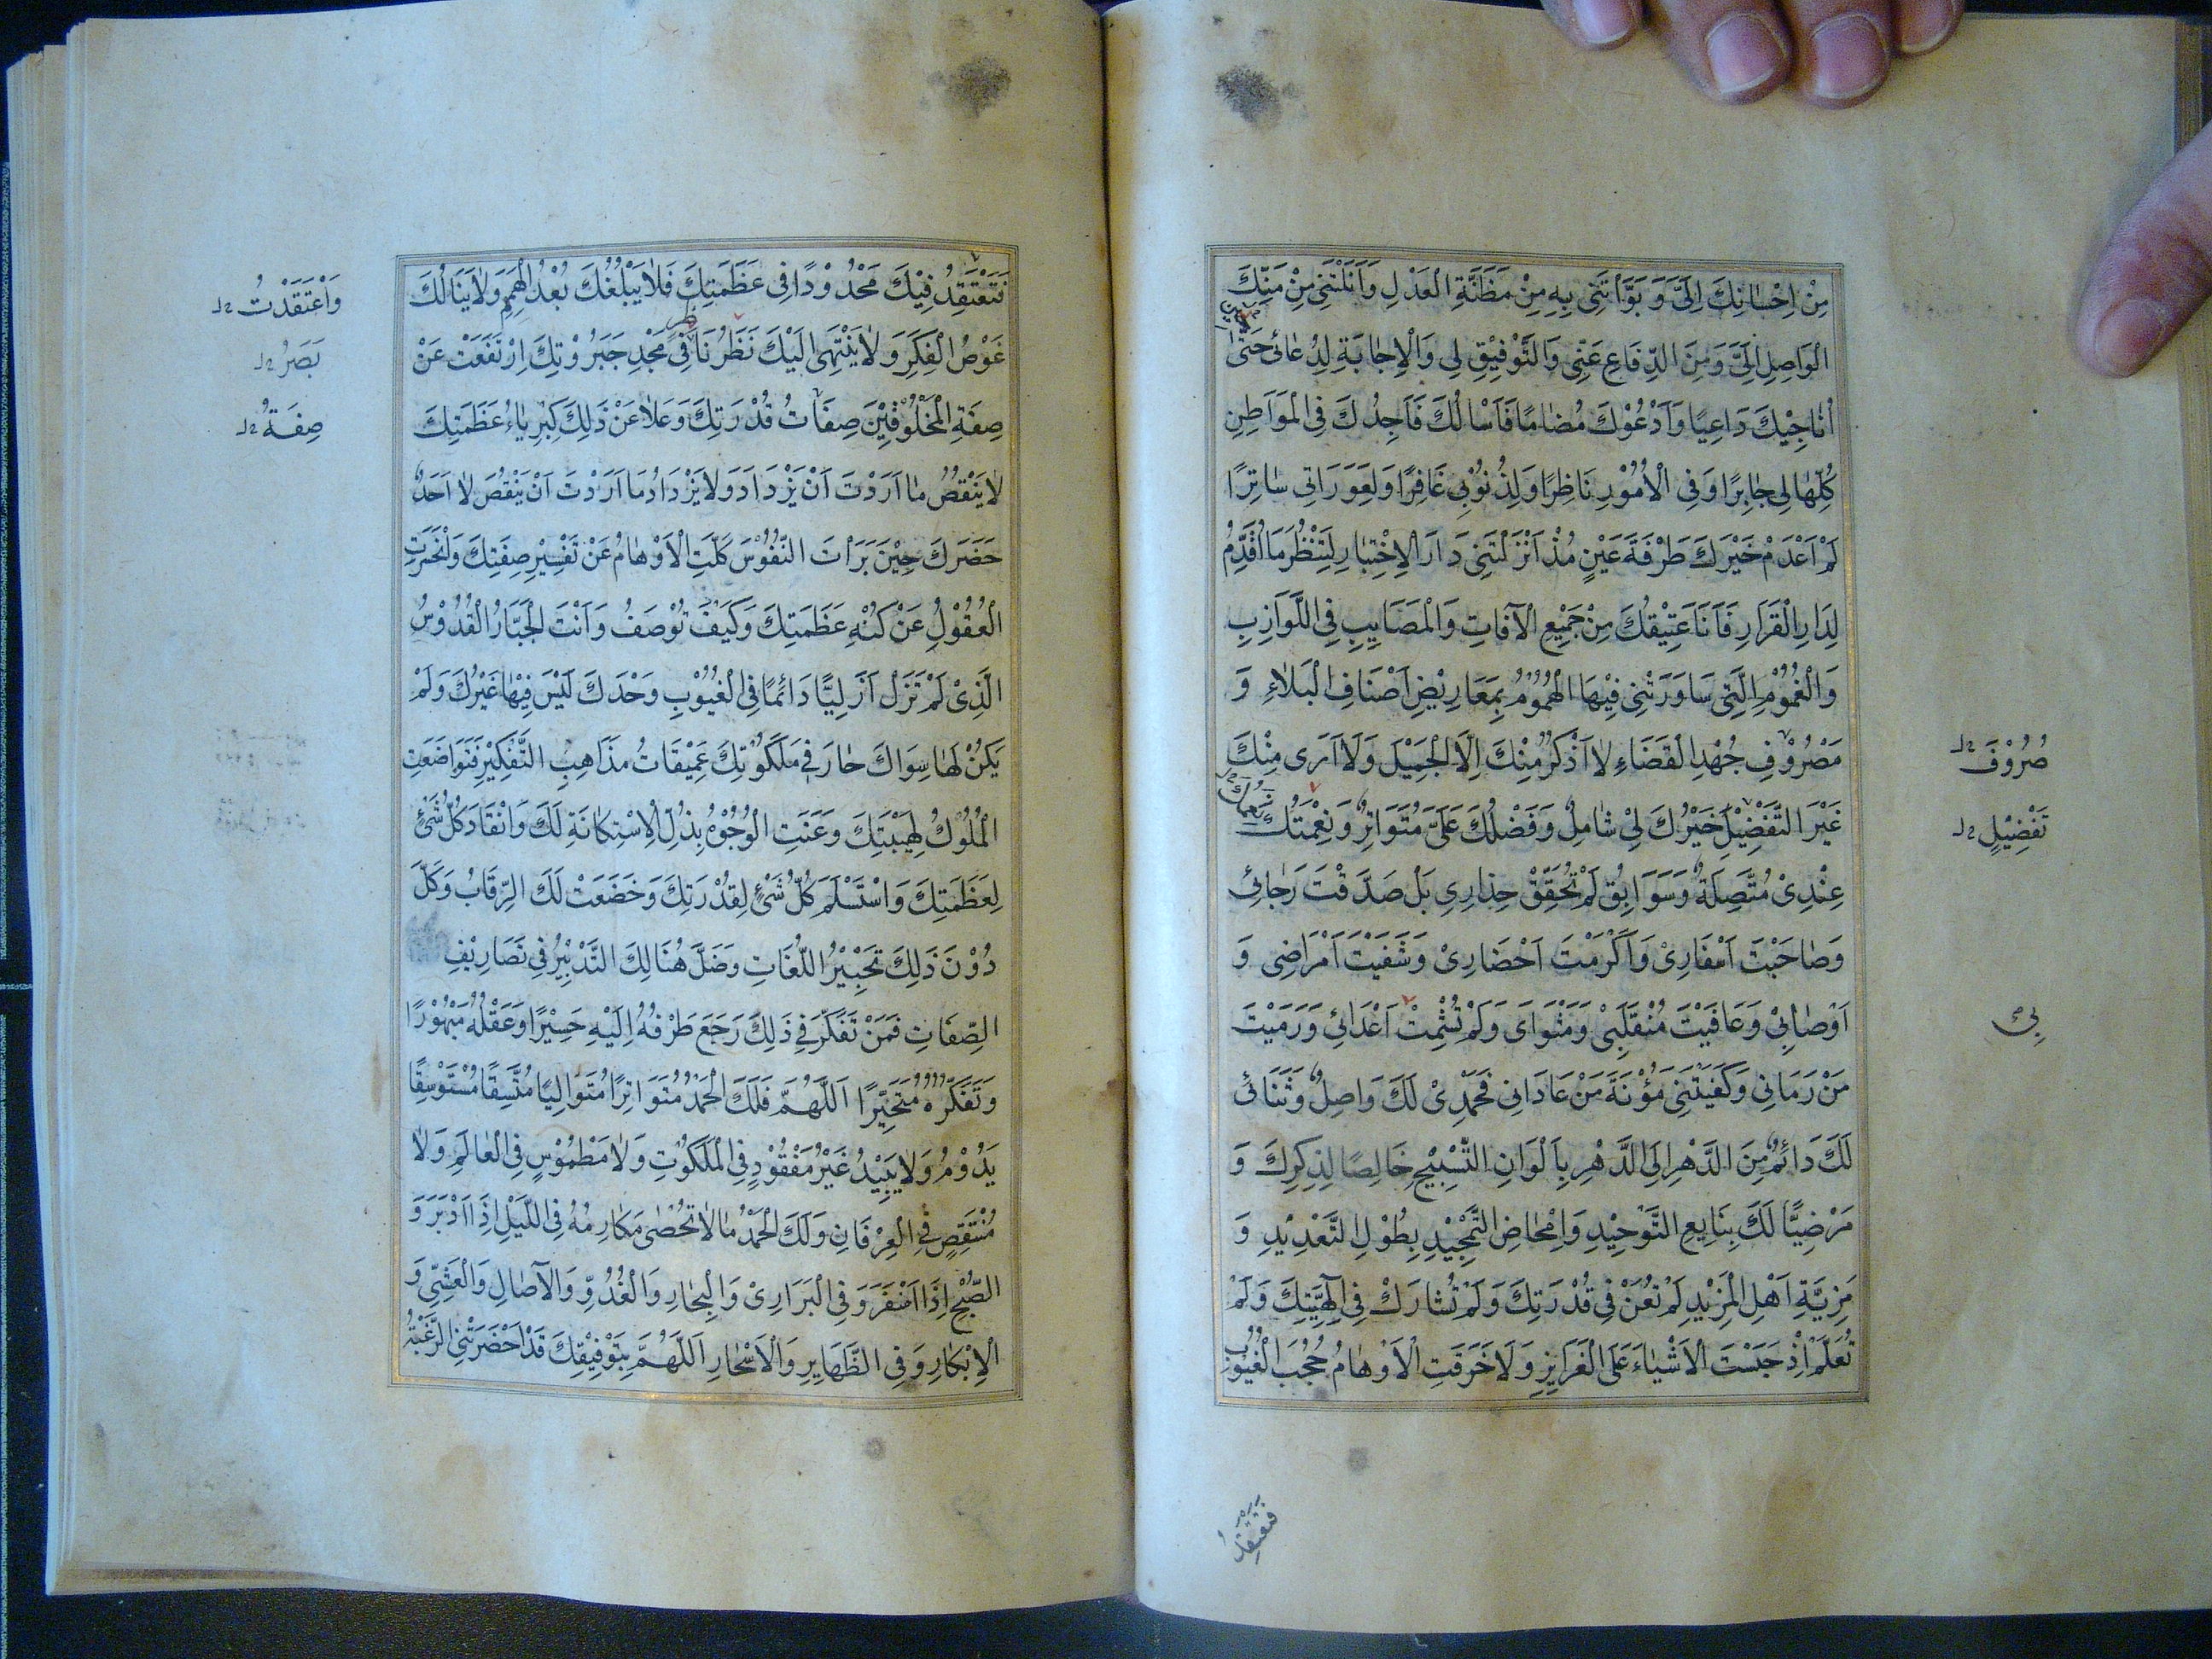 مِنْ اِحْسٰانِكَ اِلَيَّ وَ بَوَّأْتَنِى بِهِ مِنْ مَظَنَّةِ الْعَدْلِ وَاَنَلْتَنِى مِنْ مَنِّكَ
الْوَاصِلِ اِلَىَّ وَمِنَ الدِّفَاعِ عَنِّى وَالتَّوْفِيْقِ لِى وَالْاِجٰابَةِ لِدُعٰائِى حَتّٰى
اُنٰاجِيْكَ دَاعِيًا وَاَدْعُوْكَ مُضٰامًا فَاَسْاَلُكَ فَاَجِدُكَ فِى الْمَوَاطِنِ
كُلِّهٰا لِى جٰابِرًا وَفِى الْاُمُوْرِ نَاظِرًا وَلِذُنُوْبِى غَافِرًا وَلِعَوَرَاتِى سٰاتِرًا
لَمْ اَعْدَمْ خَيْرَكَ طَرْفَةَ عَيْنٍ مُذْ اَنْزَلْتَنِى دَارَ الْاِخْتِبٰارِ لِتَنْظُرَ مَا اُقَدِّمُ
لِدَارِ الْقَرَارِ فَاَنَا عَتِيْقُكَ مِنْ جَمِيْعِ الْآفَاتِ وَالْمَصَايِبِ فِى اللَّوَازِبِ
وَالْغُمُوْمِ الَّتِى سَاوَرَتْنِى فِيْهَا الْهُمُوْمُ بِمَعَارِيْضِ اَصْنَافِ الْبَلاٰءِ وَ
مَصْرُوْفِ جُهْدِ الْقَضَاءِ لاٰ اَذْكُرُ مِنْكَ اِلَّا الْجَمِيْلَ وَلَا اَرَى مِنْكَ
صُرُوْفَ
غَيْرَ التَّفْضِيْلِ خَيْرُكَ لِىْ شٰامِلٌ وَفَضْلُكَ عَلَىَّ مُتَوَاتِرٌ وَنِعْمَتُكَ
تَفْضِيْلٍ
عِنْدِىْ مُتَّصِلَةٌ وَسَوَابِقُ لَمْ تُحَقِّقْ حِذَارِىِ بَلْ صَدَّقْتَ رَجٰائِى
وَصٰاحَبْتَ اَسْفَارِىْ وَاَكْرَمْتَ اَحْضَارِىْ وَشَفَيْتَ اَمْرَاضِى وَ
اَوْصٰابِىْ وَعَافَيْتَ مُنْقَلَبِىْ وَمَثْوَاىَ وَلَمْ تُشْمِتْ اَعْدَائِى وَرَمَيْتَ
بِى
مَنْ رَمَانِى وَكَفَيْتَنِى مَؤُنَةَ مَنْ عَادَانِى فَحَمْدِىْ لَكَ وَاصِلٌ وَثَنَائِى
لَكَ دَائِمٌ مِنَ الدَّهْرِ اِلَى الدَّهْرِ بِاَلْوَانِ التَّسْبِيْحِ خَالِصًا لِذِكْرِكَ وَ
مَرْضِيًّا لَكَ بِنَايِعِ التَّوْحِيْدِ وَاِمْحَاضِ التَّمْجِيْدِ بِطُوْلِ التَّعْدِيْدِ وَ
مَزِيَّةِ اَهْلِ الْمَزِيْدِ لَمْ تُعَنْ فِى قُدْرَتِكَ وَلَمْ تُشَارَكْ فِى اِلٰهِيَّتِكَ وَلَمْ
تُعْلَمْ اِذْ حَبَسْتَ الْاَشْيٰاءَ عَلَى الْغَرَايِزِ وَلَا خَرَقَتِ الْاَوْهٰامُ حُجُبَ الْغُيُوْبِ
فَتَعْتَقِدُ
فَتَعْتَقِدُ فِيْكَ مَحْدُوْدًا فِى عَظَمَتِكَ فَلاٰ يَبْلُغُكَ بُعْدُ الْهِمَمِ وَلاٰ يَنَالُكَ
وَاعْتَقَدْتُ
غَوْصُ الْفِكَرِ وَلاٰ يَنْتَهِى اِلَيْكَ نَظَرُ نَاظِرٍ فِى مَجْدِ جَبَرُوْتِكَ اِرْتَفَعَتْ عَنْ
بَصَرُ
صِفَةِ الْمَخْلُوْقِيْنَ صِفَاتُ قُدْرَتِكَ وَعَلاٰ عَنْ ذٰلِكَ كِبْرِيَاءُ عَظَمَتِكَ
صِفَةُ
لاٰ يَنْقُصُ مٰا اَرَدْتَ اَنْ يَزْدَادَ وَلاٰ يَزْدَادُ مَا اَرَدْتَ اَنْ يَنْقُصَ لاٰ اَحَدٌ
حَضَرَكَ حِيْنَ بَرَأْتَ النُّفُوْسَ كَلَّتِ الْاَوْهٰامُ عَنْ تَفْسِيْرِ صِفَتِكَ وَانْحَسَرَتِ
الْعُقُوْلُ عَنْ كُنْهِ عَظَمَتِكَ وَكَيْفَ تُوْصَفُ وَاَنْتَ الْجَبَّارُ الْقُدُّوْسُ
الَّذِىْ لَمْ تَزَلْ اَزَلِيًّا دَائِمًا فِى الْغُيُوْبِ وَحْدَكَ لَيْسَ فِيْهٰا غَيْرُكَ وَلَمْ
يَكُنْ لَهٰا سِوَاكَ حٰارَ فِى مَلَكُوْتِكَ عَمِيْقَاتُ مَذَاهِبِ التَّفْكِيْرِ فَتَوَاضَعَتِ
الْمُلُوْكُ لِهَيْبَتِكَ وَعَنَتِ الْوُجُوْهُ بِذُلِّ الْاِسْتِكٰانَةِ لَكَ وَانْقَادَ كُلُّ شَىْءٍ
لِعَظَمَتِكَ وَاسْتَسْلَمَ كُلُّ شَىْءٍ لِقُدْرَتِكَ وَخَضَعَتْ لَكَ الرِّقَابُ وَكَلَّ
دُوْنَ ذٰلِكَ تَحْبِيْرُ اللُّغَاتِ وَضَلَّ هُنَالِكَ التَّدْبِيْرُ فِى تَصَارِيْفِ
الصِّفَاتِ فَمَنْ تَفَكَّرَ فِى ذٰلِكَ رَجَعَ طَرْفُهُ اِلَيْهِ حَسِيْرًا وَعَقْلُهُ مَبْهُوْرًا
وَتَفَكُّرُهُ مُتَحَيِّرًا اَللّٰهُمَّ فَلَكَ الْحَمْدُ مُتَوَاتِرًا مُتَوَالِيًا مُتَّسِقًا مُسْتَوْسِقًا
يَدُوْمُ وَلاٰ يَبِيْدُ غَيْرَ مَفْقُوْدٍ فِى الْمَلَكُوْتِ وَلاٰ مَطْمُوْسٍ فِى الْعٰالَمِ وَلاٰ
مُنْتَقِصٍ فِى الْعِرْفَانِ وَلَكَ الْحَمْدُ مٰا لاٰ تُحْصٰى مَكٰارِمُهُ فِى اللَّيْلِ اِذَا اَدْبَرَ وَ
الصُّبْحِ اِذَا اَسْفَرَ وَفِى الْبَرَارِىْ وَالْبِحَارِ وَالْغُدُوِّ وَالْآصٰالِ وَالْعَشِىِّ وَ
الْاِبْكَارِ وَفِى الظَّهَايِرِ وَالْاَسْحَارِ اَللّٰهُمَّ بِتَوْفِيْقِكَ قَدْ اَحْضَرْتَنِى الرَّغْبَةَ